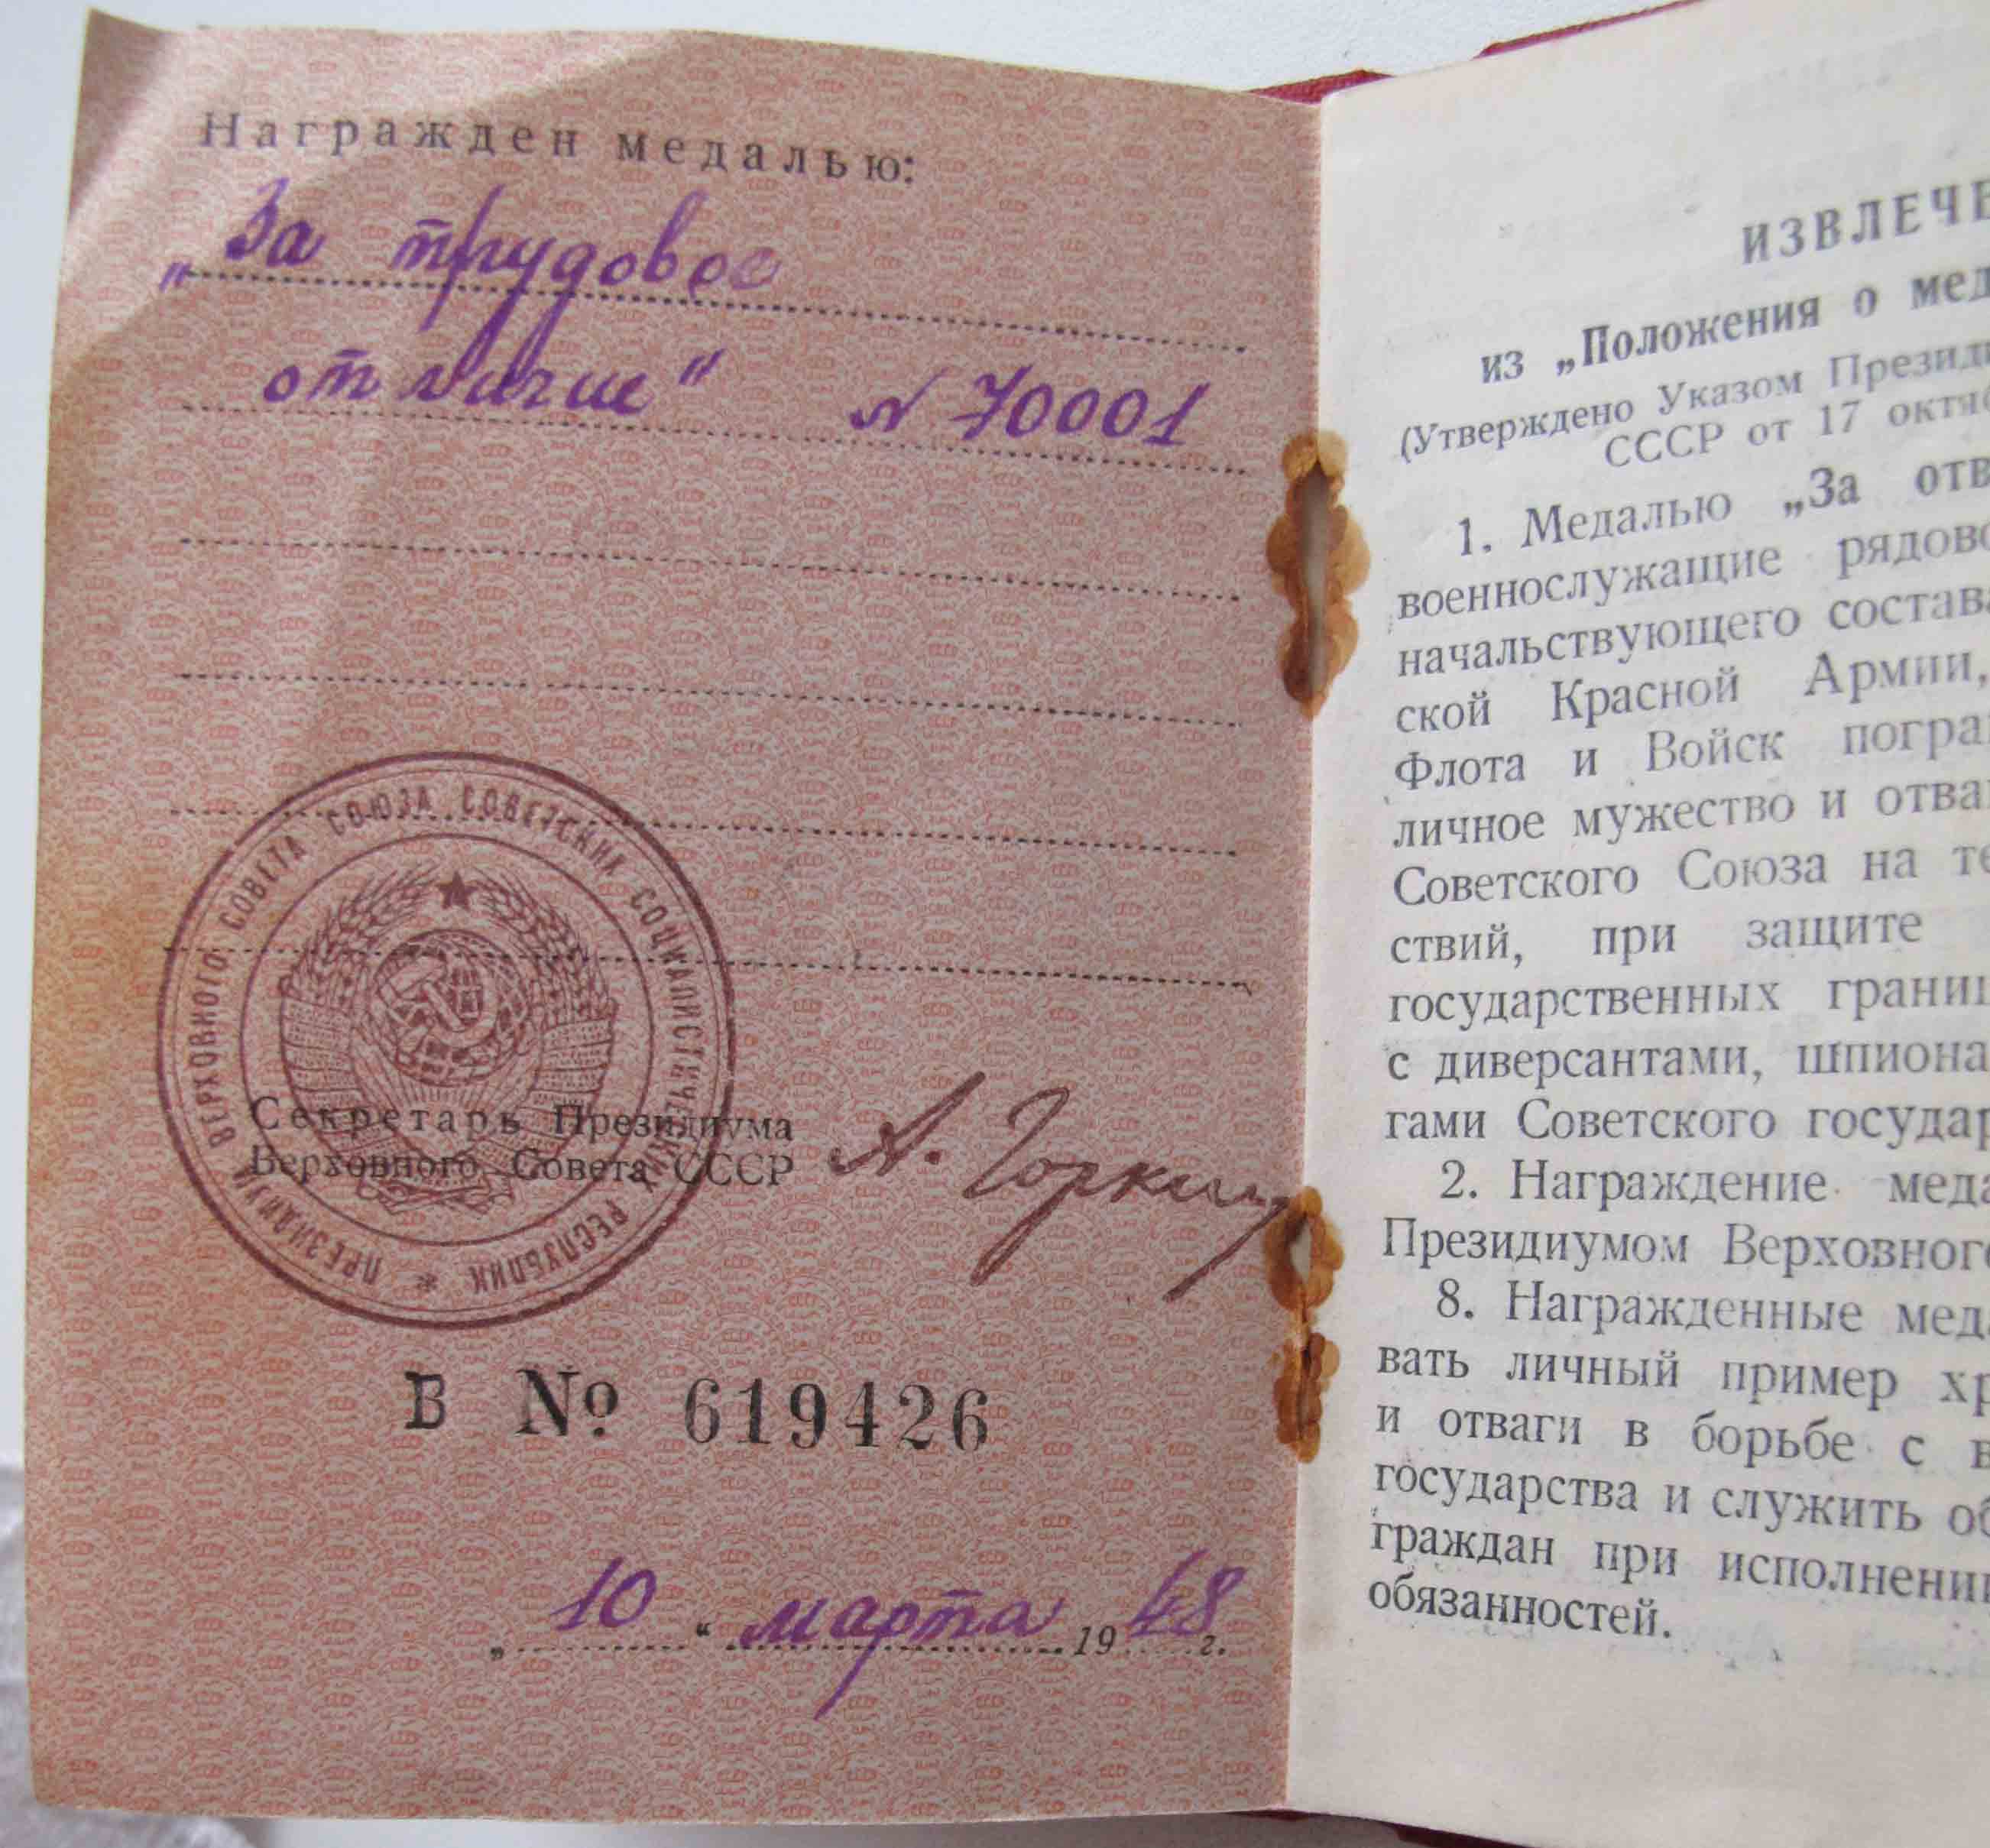 Награжден медалью:
„За трудовое
отличие" N 70001
ПРЕЗИДИУМ ВЕРХОВНОГО СОВЕТА СОЮЗА СОВЕТСКИХ СОЦИАЛИСТИЧЕСКИХ РЕСПУБЛИК *
Секретарь Президиума
Верховного Совета СССР
А. Горкин
В № 619426
„10 “ марта 1948 г.
ИЗВЛЕЧЕ
из „Положения о мед
(Утверждено Указом Президи
СССР от 17 октя
1. Медалью „За отв
военнослужащие рядово
начальствующего состава
ской Красной Армии,
Флота и Войск погра
личное мужество и отва
Советского Союза на те
ствий, при защите
государственных границ
с диверсантами, шпиона
гами Советского государ
2. Награждение меда
Президиумом Верховного
8. Награжденные меда
вать личный пример хр
и отваги в борьбе с в
государства и служить об
граждан при исполнении
обязанностей.